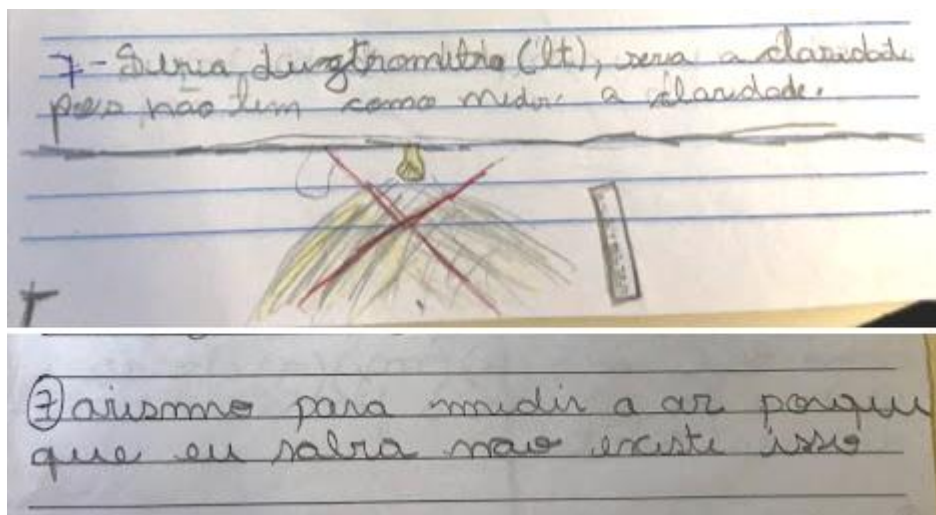 7- Seria Luzghomitro (lt), seria a claridade
pois não tem como medir a claridade.
7 arismo para medir a ar porque
que eu saiba não existe isso